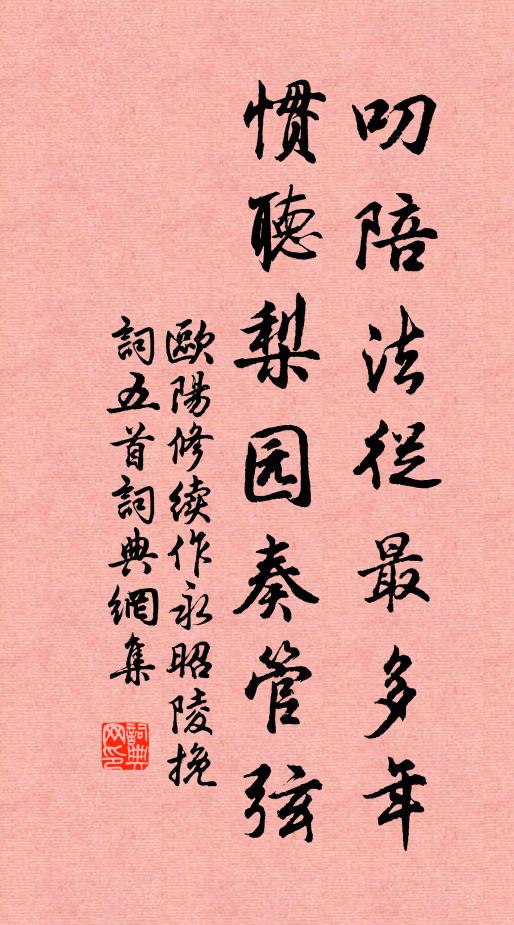 叨陪法從最多年
慣聽梨园奏管弦
歐陽修续作永昭陵挽
詞五首詞典網集
詞典
网印